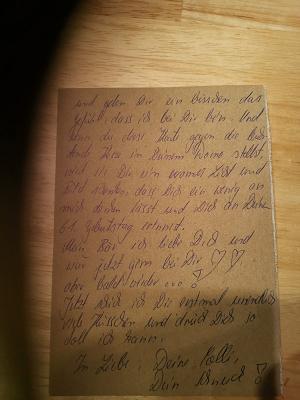 und geben Dir ein bisschen das
Gefühl, dass ich bei Dir bin. Und
wenn du diese Karte gegen die
in Deinem stellst,
wird sie Dir ein warmes Licht und
dass Dich ein wenig an
mich denken lässt und Dich an Deinen
61. Geburtstag erinnert.
Mein Bär ich liebe Dich und
wär jetzt gern bei Dir ♡ ♡.
aber bald wieder ...
Jetzt schick ich Dir erstmal unendlich
viele Küsschen und drück Dich so
doll ich kann.
In Liebe, Deine
Dein